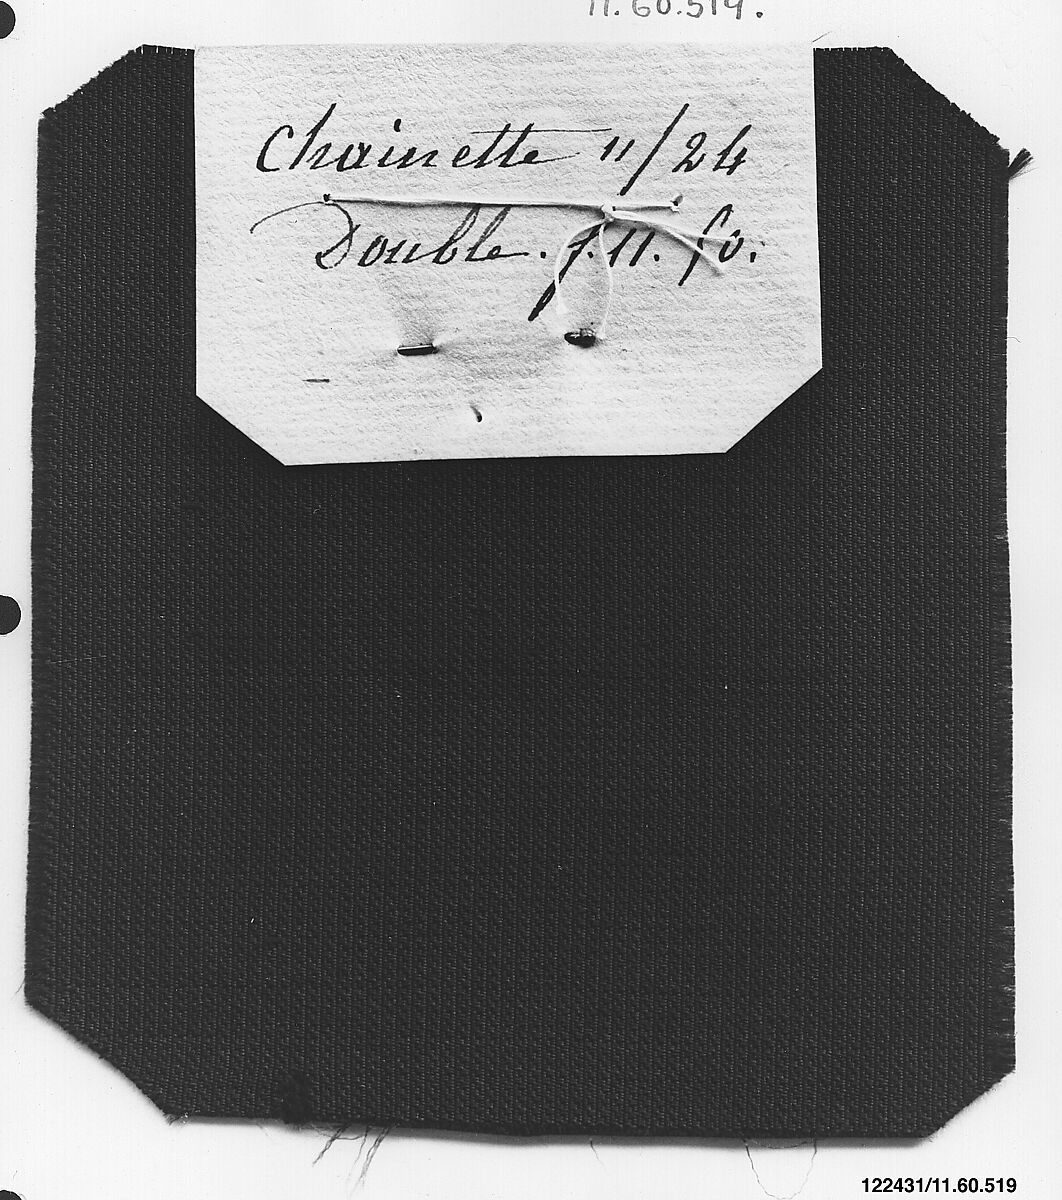 11.60.519.
Chainette "/24
Double. f. 11. 50.
122431/11.60.519